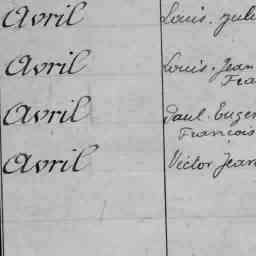 Avril Louis. Jul
Avril Louis. Jean
Fra
Avril Paul. Eugen
François
Avril Victor Jean